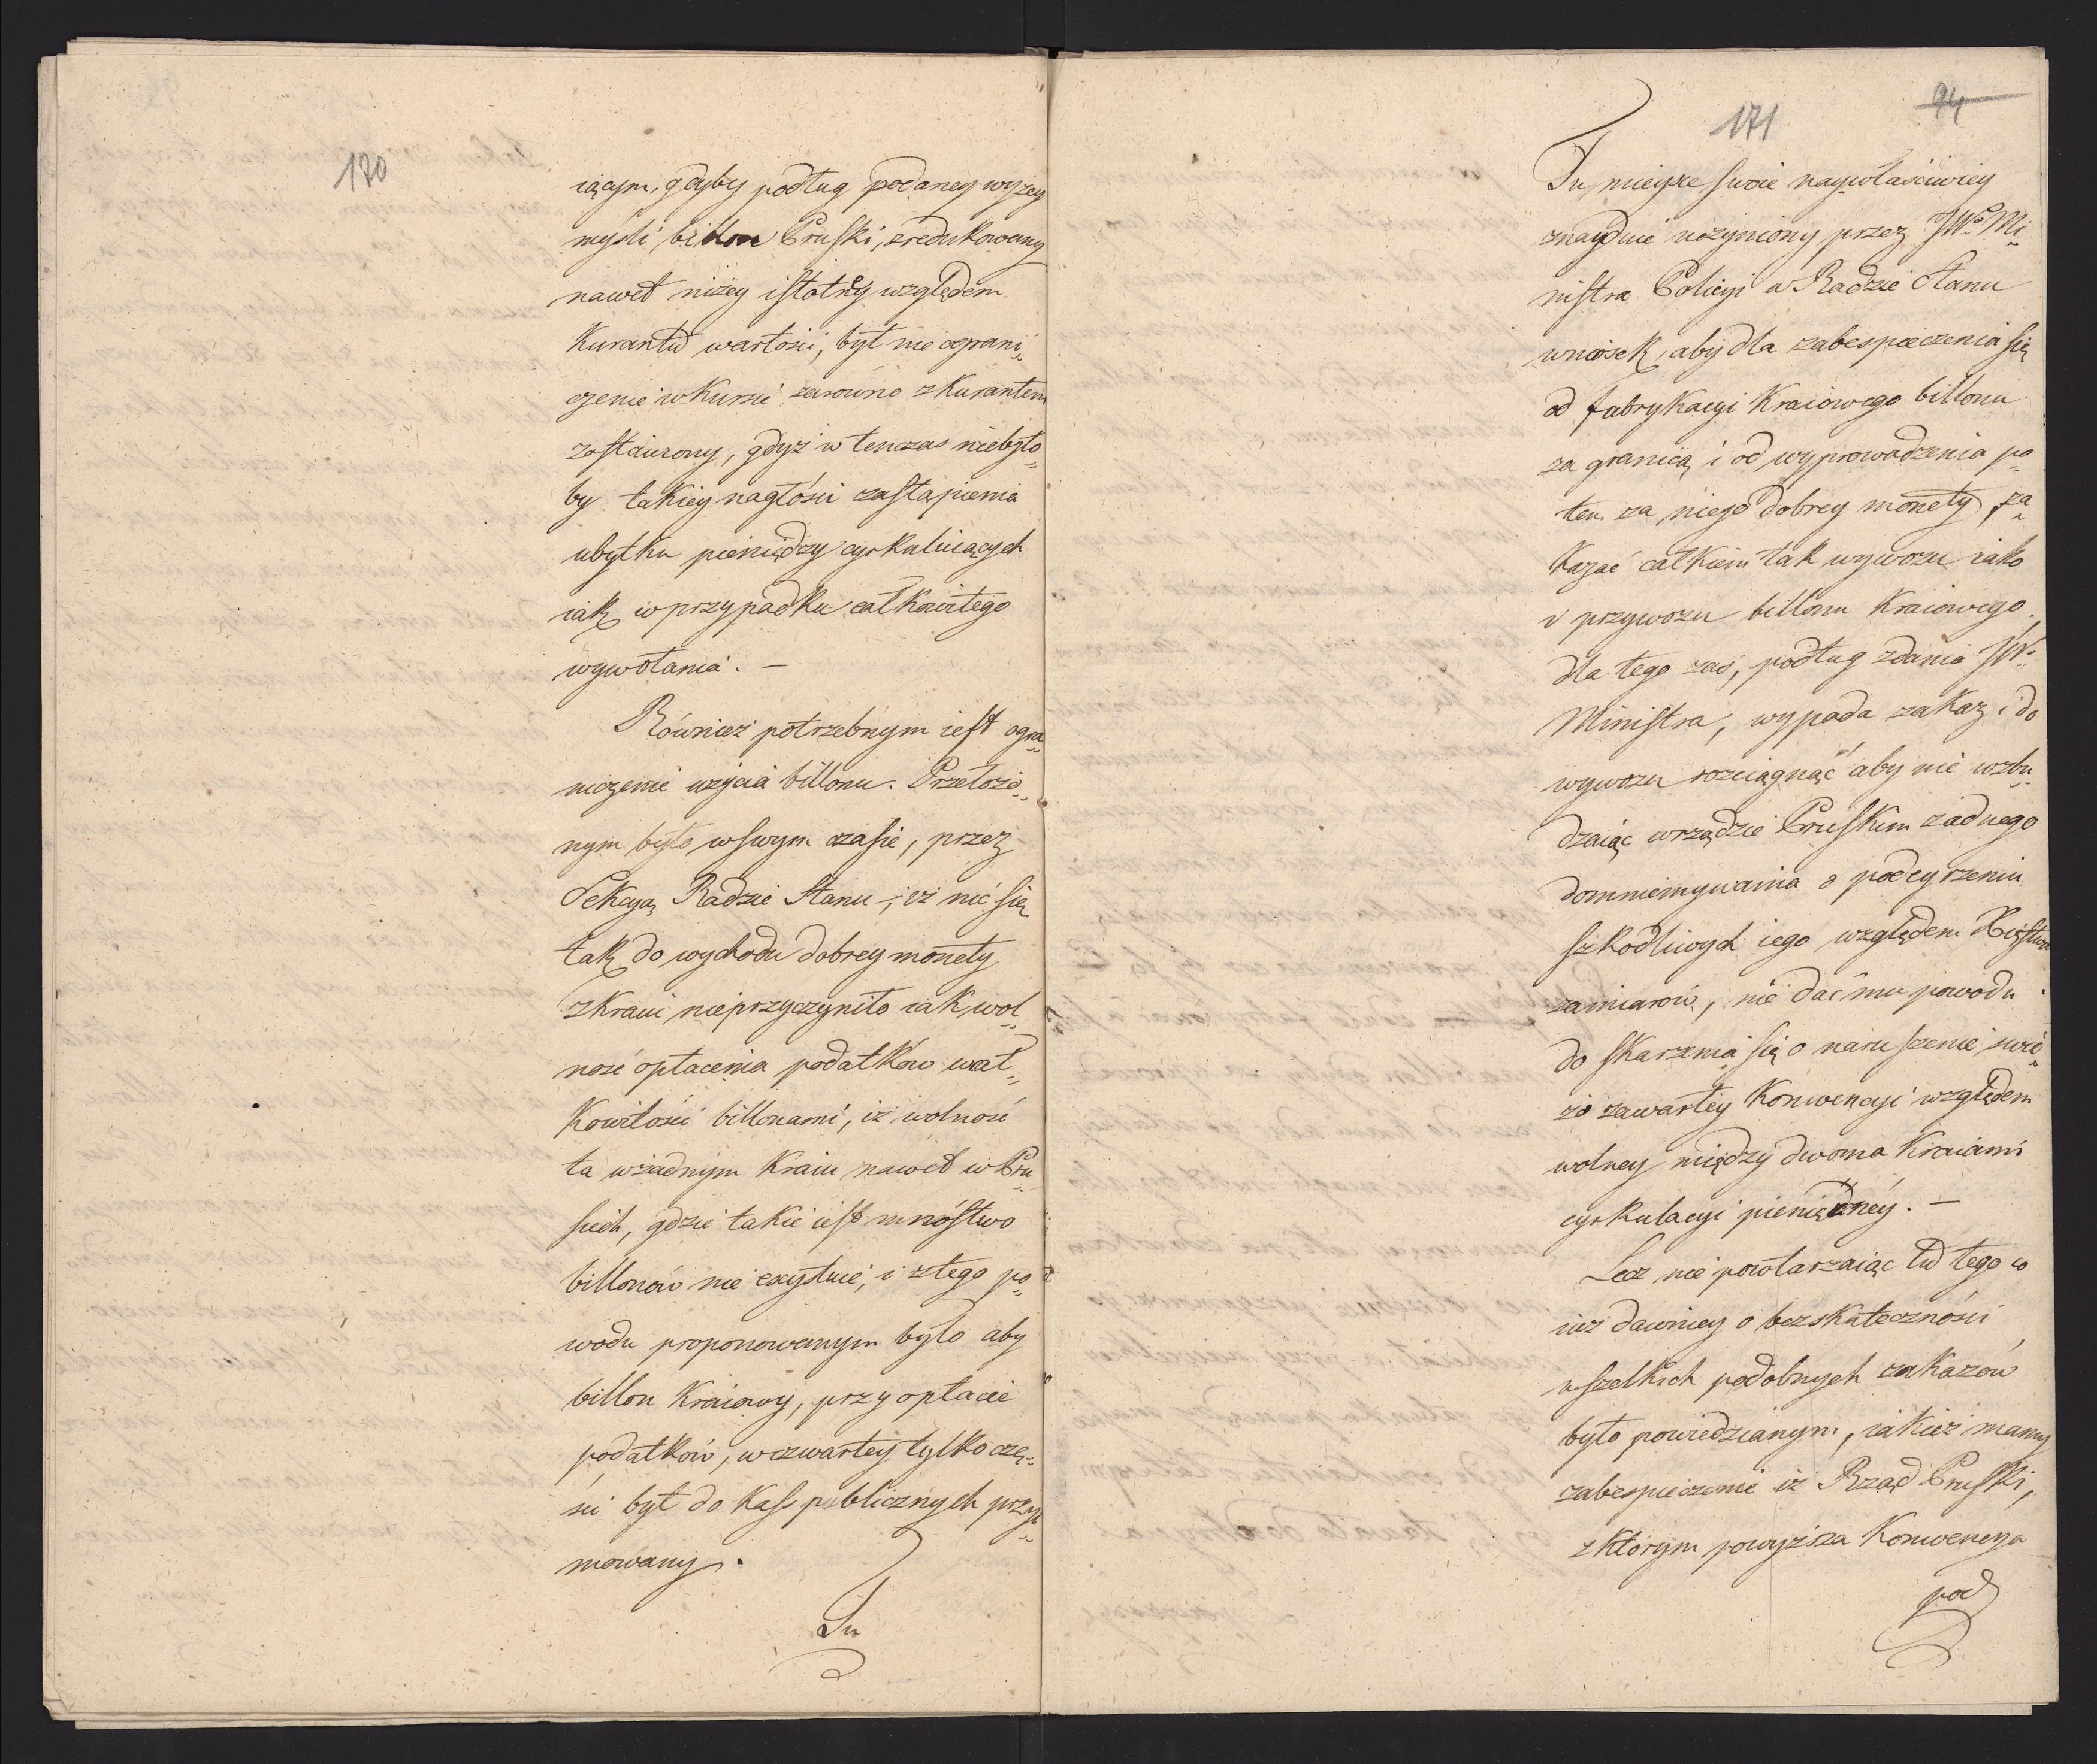 170
iącym, gdyby podług podaney wyżey
myśli billon Pruski, zredukowany
nawet niżey istotney względem
Kurantu wartości, był nie ograni„
czenie w kursie zarówno z Kurantem
zostawiony, gdyż w tenczas niebyło„
by takiey nagłości zastąpienia
ubytku pieniędzy cyrkuluiących
iak w przypadku całkowitego
wywołania. —
Również potrzebnym iest ogra„
niczenie użycia billonu. Przełożo„
nym było w swym czasie, przez
Sekcyą Radzie Stanu, iż nic się
tak do wychodu dobrey monety
z Kraiu nieprzyczyniło iak wol„
ność opłacenia podatków w cał„
Kowitości billonami, iż wolność
ta w żadnym Kraiu nawet w Pru„
siech, gdzie takie iest mnóstwo
billonów nie exystuie, i z tego po„
wodu proponowanym było aby
billon Kraiowy, przy opłacie
podatków, w czwartey tylko czę„
ści był do Kass publicznych przyi„
mowany.
Tu
94
171
Tu mieysce swoie naywłaściwiey
znayduie uczyniony przez JWo Mi„
nistra Policyi w Radzie Stanu
wniosek, aby dla zabespieczenia się
od fabrykacyi Kraiowego billonu
za granicą i od wyprowadzenia po„
tem za niego dobrey monety, za„
Kazać całkiem tak wywozu iako
i przywozu billonu Kraiowego,
dla tego zaś, podług zdania JWo
Ministra, wypada zakaz i do
wywozu rozciągnąć aby nie wzbu„
dzaiąc w rządzie Pruskim żadnego
domniemywania o podeyrzeniu
szkodliwych iego względem Xięstwa
zamiarów, nie dać mu powodu
do skarżenia się o naruszenie świe„
żo zawartey Konwencyi względem
wolney między dwoma Kraiami
cyrkulacyi pieniężney. —
Lecz nie powtarzaiąc tu tego co
iuż dawniey o bezskuteczności
wszelkich podobnych zakazów
było powiedzianym, iakież mamy
zabespieczenie iż Rząd Pruski,
z którym powyższa Konwencya
pod